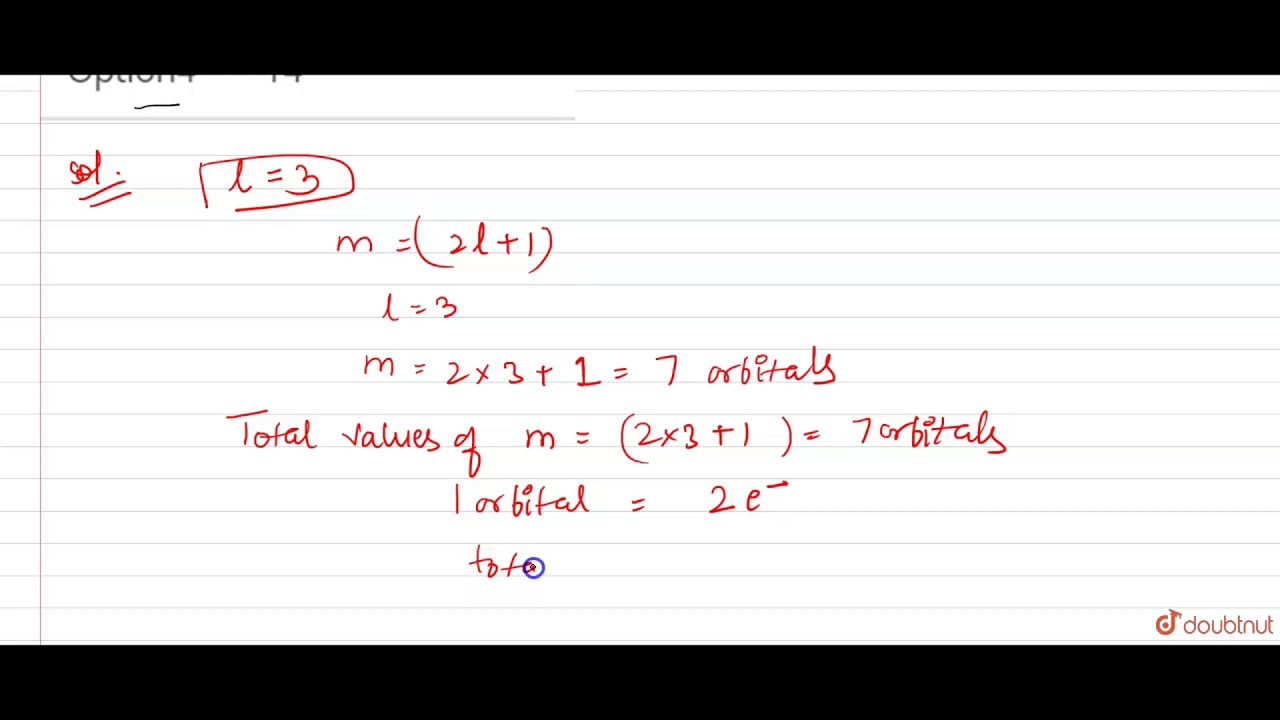 Option4 14
sol.
l = 3
m = (2l + 1)
l = 3
m = 2 × 3 + 1 = 7 orbitals
Total values of m = (2×3 + 1) = 7 orbitals
1 orbital = 2e⁻
tota
doubtnut